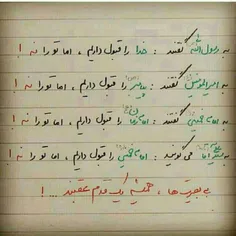 به رسول الله گفتند : خدا را قبول داریم ، اما تو را نه !
به امیرالمومنین گفتند : پیامبر را قبول داریم ، اما تو را نه !
به امام خمینی گفتند : امام زمان را قبول داریم ، اما تو را نه !
به می گویند : امام خمینی را قبول داریم ، اما تو را نه !
بی بصیرت ها ، همیشه یک قدم عقبند ... !